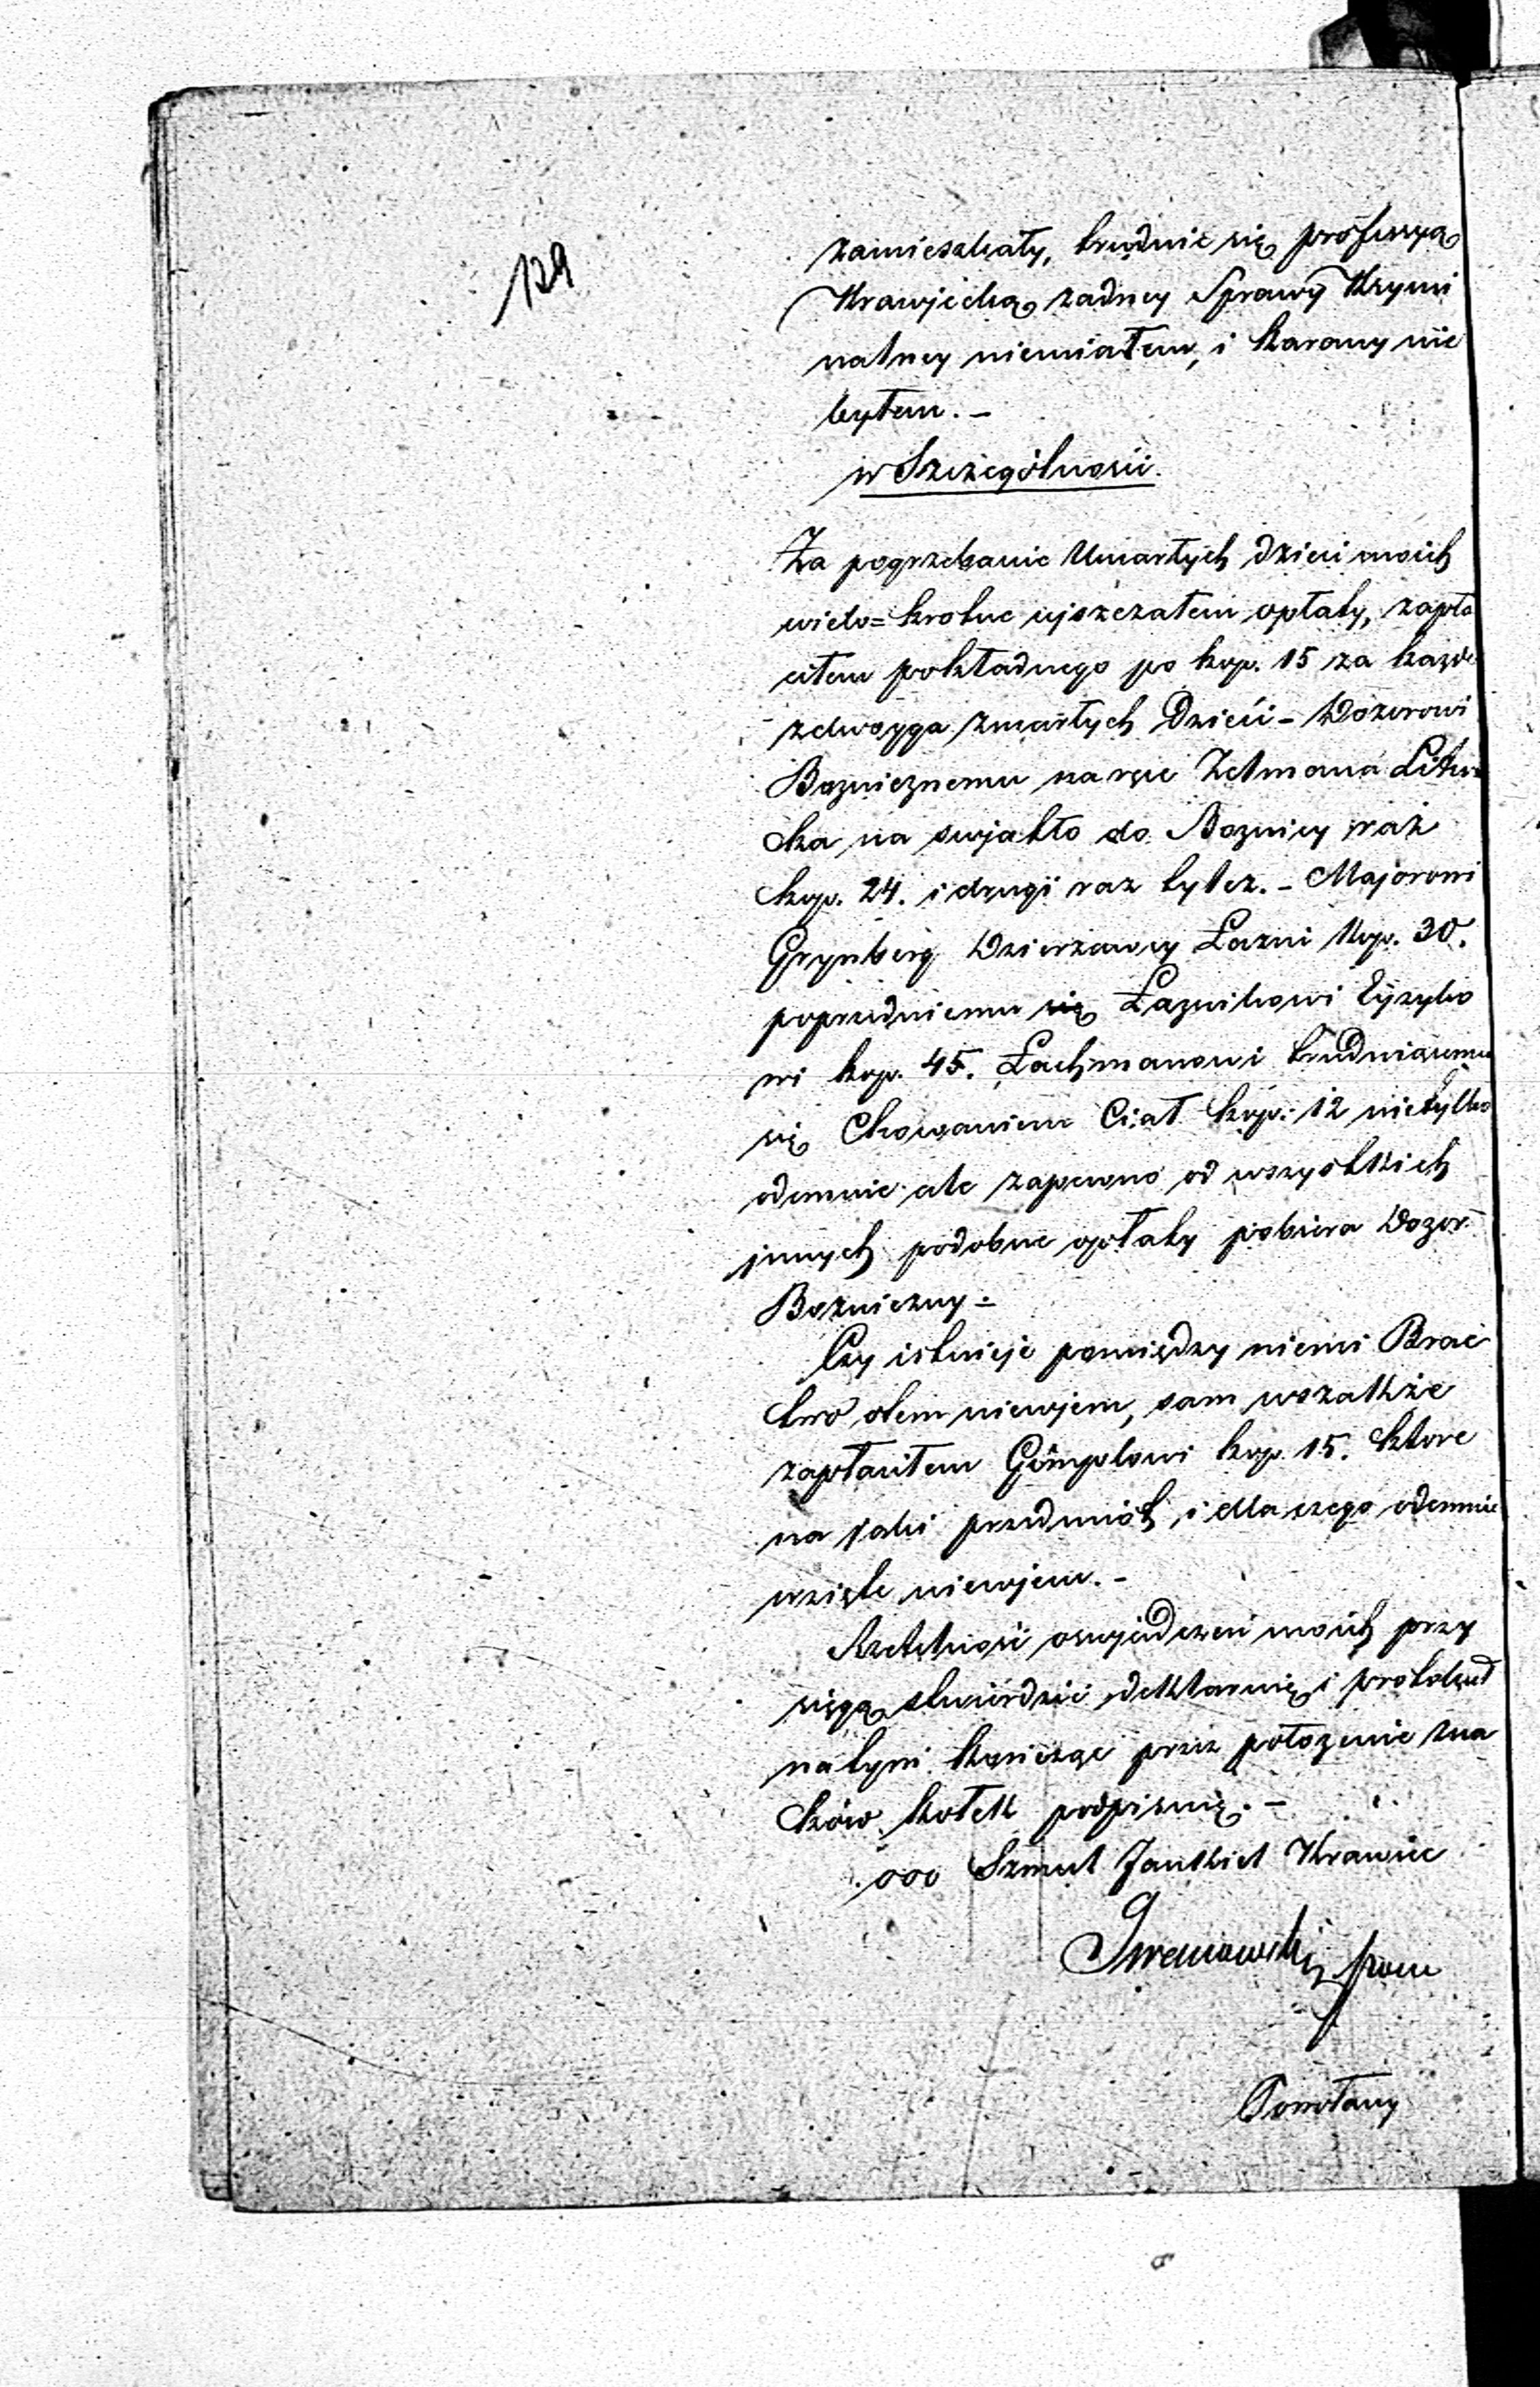 139
zamieszkały, trudnie się professyą
Krawjecką zadney Sprawy Krymi
nalney niemiałem, i karany nie
byłem. –
w Szczególnosci.
Za pogrzebanie Umarłych dzieci moich
wielo= krotne ujszczałem opłaty, zapła
ciłem pokładnego po kop. 15 za każde
zdwoyga zmarłych Dzieci – Dozorowi
Boznicznemu na ręce Zelmana Litwa
ka na swjatło do Boznicy raz
kop. 24. i drugi raz tylez. – Majorowi
Grynberg Dzierzawcy Łazni Kop. 30.
poprzedniemu się Łaznikowi
wi kop. 45. Łachmanowi trudniącemu
się Chowaniem Ciał kop. 12 nietylko
odemnie ale zapewno od wszystkich
innych podobne opłaty pobiera Dozor
Bozniczny =
Czy istnieje pomiędzy niemi Brac
two otem niewjem, sam wszakże
zapłaciłem Gömplowi kop. 15. ktore
na jaki przedmiot, i dla czego odemnie
wzięte niewjem. –
Rzetelność oswjadczeń moich przy
sięgą stwierdzić deklaruię i protokuł
natym kończąc przez położenie zna
ków kołek podpisuię. –
ooo Szmul Jankiel Krawiec
Powołany